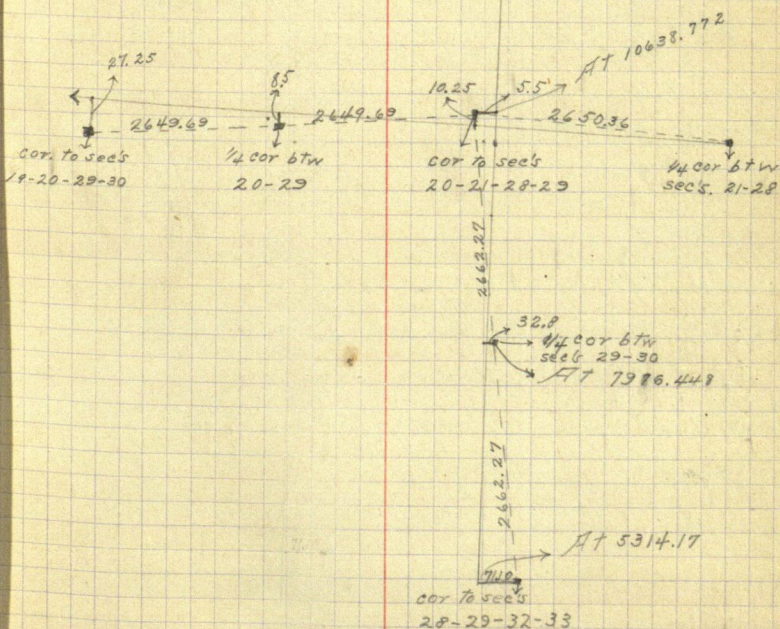 At 10638.772
27.25
8.5
10.25
5.5
2649.69
2649.69
2650.36
cor. to sec's
19-20-29-30
1/4 cor btw
20-29
cor to sec's
20-21-28-29
1/4 cor btw
sec's. 21-28
2662.27
32.8
1/4 cor btw
sec's 29-30
At 7976.448
2662.27
At 5314.17
cor to sec's
28-29-32-33